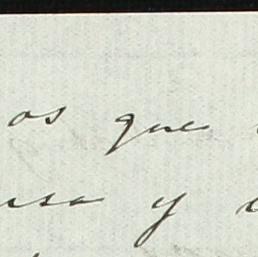 os que
usa y